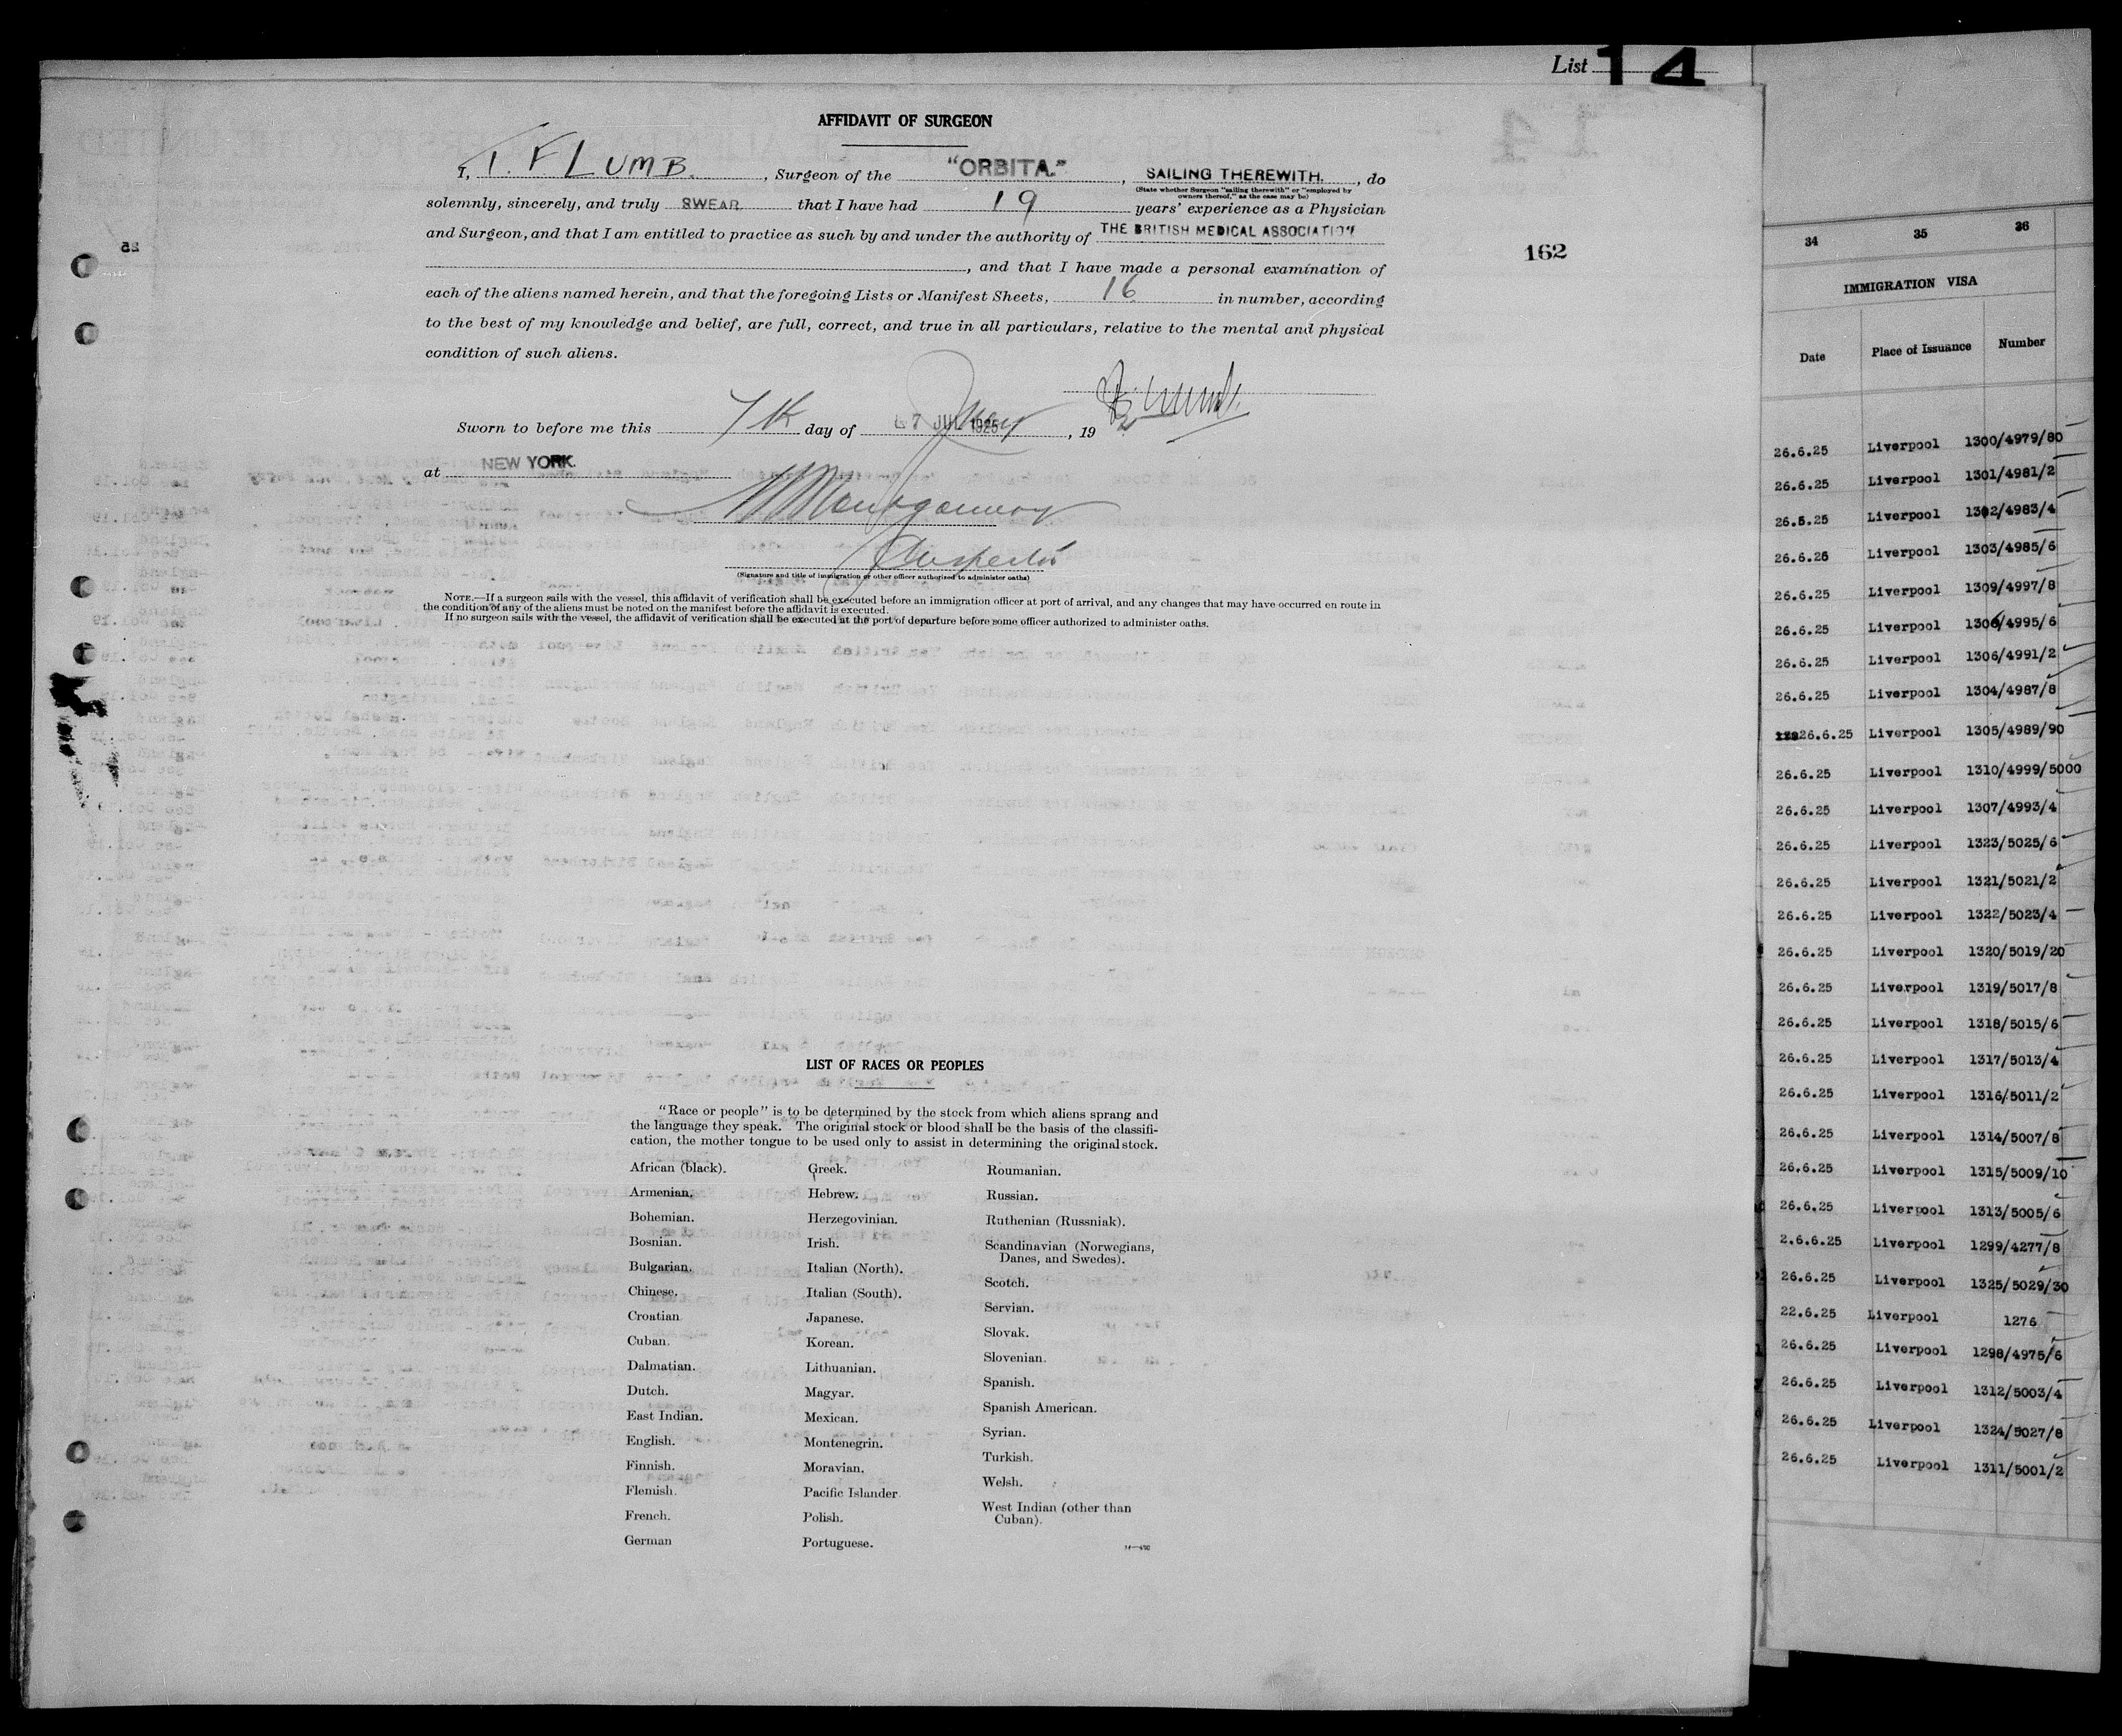 List 14
AFFIDAVIT OF SURGEON
I, T. F LUMB., Surgeon of the "ORBITA.", SAILING THEREWITH., do
(State whether Surgeon "sailing therewith" or "employed by
owners thereof," as the case may be)
solemnly, sincerely, and truly SWEAR that I have had 19 years' experience as a Physician
and Surgeon, and that I am entitled to practice as such by and under the authority of THE BRITISH MEDICAL ASSOCIATION
, and that I have made a personal examination of
each of the aliens named herein, and that the foregoing Lists or Manifest Sheets, 16 in number, according
to the best of my knowledge and belief, are full, correct, and true in all particulars, relative to the mental and physical
condition of such aliens.
Sworn to before me this 7th day of 7 JUL 1925, 19
at NEW YORK.
Inspector
(Signature and title of immigration or other officer authorized to administer oaths)
NOTE.—If a surgeon sails with the vessel, this affidavit of verification shall be executed before an immigration officer at port of arrival, and any changes that may have occurred en route in
the condition of any of the aliens must be noted on the manifest before the affidavit is executed.
If no surgeon sails with the vessel, the affidavit of verification shall be executed at the port of departure before some officer authorized to administer oaths.
162
LIST OF RACES OR PEOPLES
"Race or people" is to be determined by the stock from which aliens sprang and
the language they speak. The original stock or blood shall be the basis of the classifi-
cation, the mother tongue to be used only to assist in determining the original stock.
African (black).
Armenian.
Bohemian.
Bosnian.
Bulgarian.
Chinese.
Croatian
Cuban.
Dalmatian.
Dutch.
East Indian.
English.
Finnish.
Flemish.
French.
German
Greek.
Hebrew.
Herzegovinian.
Irish.
Italian (North).
Italian (South).
Japanese.
Korean.
Lithuanian.
Magyar.
Mexican.
Montenegrin.
Moravian.
Pacific Islander
Polish.
Portuguese.
Roumanian.
Russian.
Ruthenian (Russniak).
Scandinavian (Norwegians,
Danes, and Swedes).
Scotch.
Servian.
Slovak.
Slovenian.
Spanish.
Spanish American.
Syrian.
Turkish.
Welsh.
West Indian (other than
Cuban).
34 35 36
IMMIGRATION VISA
Date Place of Issuance Number
26.6.25 Liverpool 1300/4979/80
26.6.25 Liverpool 1301/4981/2
26.5.25 Liverpool 1302/4983/4
26.6.26 Liverpool 1303/4985/6
26.6.25 Liverpool 1309/4997/8
26.6.25 Liverpool 1306/4995/6
26.6.25 Liverpool 1306/4991/2
26.6.25 Liverpool 1304/4987/8
26.6.25 Liverpool 1305/4989/90
26.6.25 Liverpool 1310/4999/5000
26.6.25 Liverpool 1307/4993/4
26.6.25 Liverpool 1323/5025/6
26.6.25 Liverpool 1321/5021/2
26.6.25 Liverpool 1322/5023/4
26.6.25 Liverpool 1320/5019/20
26.6.25 Liverpool 1319/5017/8
26.6.25 Liverpool 1318/5015/6
26.6.25 Liverpool 1317/5013/4
26.6.25 Liverpool 1316/5011/2
26.6.25 Liverpool 1314/5007/8
26.6.25 Liverpool 1315/5009/10
26.6.25 Liverpool 1313/5005/6
2.6.6.25 Liverpool 1299/4277/8
26.6.25 Liverpool 1325/5029/30
22.6.25 Liverpool 1276
26.6.25 Liverpool 1298/4975/6
26.6.25 Liverpool 1312/5003/4
26.6.25 Liverpool 1324/5027/8
26.6.25 Liverpool 1311/5001/2